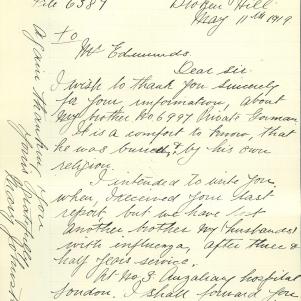 File 6387
Broken Hill
May 11th 1919
To
Mr Edmunds.
Dear sir
I wish to thank you sincerely
for your information, about
my brother No 6997 Private Gorman
It is a comfort to know, that
he was buried, by his own
religion.
I intended to write you
when, I received your last
report, but we have lost
another brother (my husbands)
with influenza, after three &
half years service.
At No. 3 Auxiliary hospital
London. I shall forward you
Again thanking you
Yours Gratefully
Mary